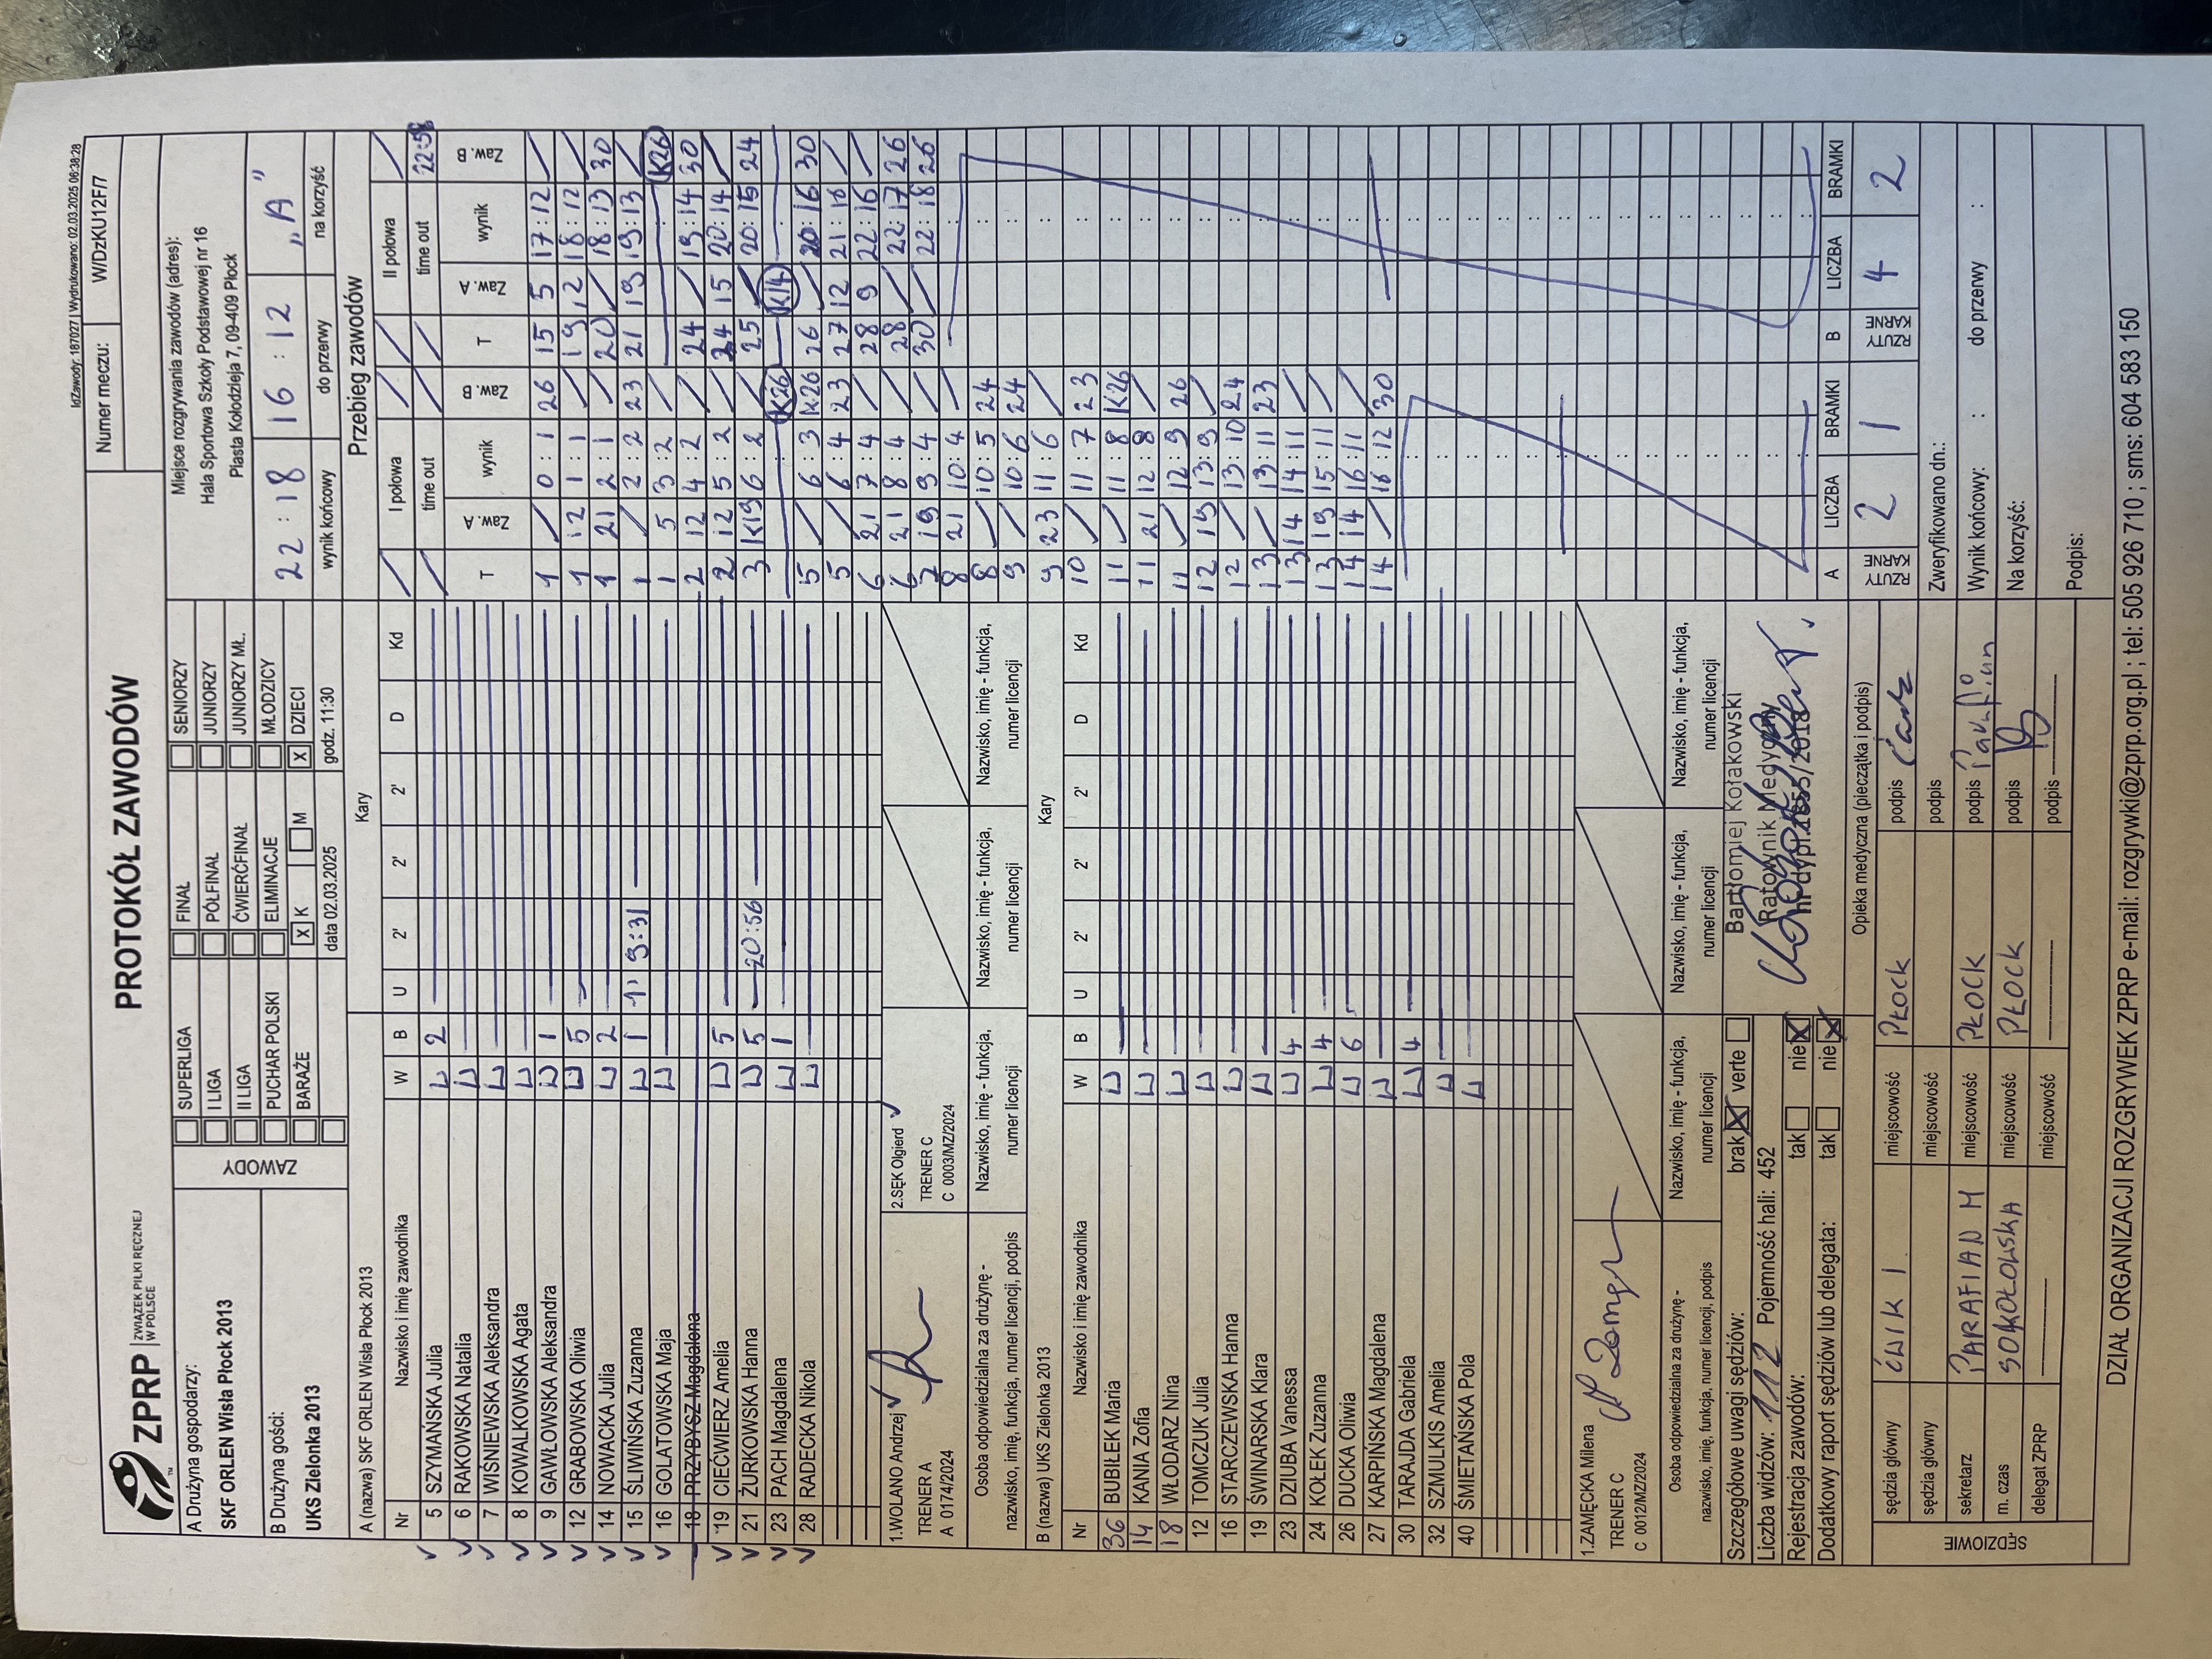 IdZawody: 187027 | Wydrukowano: 02.03.2025 08:38:28
ZPRP ZWIĄZEK PIŁKI RĘCZNEJ W POLSCE
PROTOKÓŁ ZAWODÓW
Numer meczu: W/DzKU12F/7
A Drużyna gospodarzy:
SKF ORLEN Wisła Płock 2013
B Drużyna gości:
UKS Zielonka 2013
ZAWODY
SUPERLIGA FINAŁ SENIORZY
I LIGA PÓŁFINAŁ JUNIORZY
II LIGA ĆWIERĆFINAŁ JUNIORZY MŁ.
PUCHAR POLSKI ELIMINACJE MŁODZICY
BARAŻE X K M X DZIECI
data 02.03.2025 godz. 11:30
Miejsce rozgrywania zawodów (adres):
Hala Sportowa Szkoły Podstawowej nr 16
Piasta Kołodzieja 7, 09-409 Płock
22 : 18 16 : 12 „A”
wynik końcowy do przerwy na korzyść
A (nazwa) SKF ORLEN Wisła Płock 2013 Kary
Nr Nazwisko i imię zawodnika W B U 2' 2' 2' D Kd
5 SZYMAŃSKA Julia W 2
6 RAKOWSKA Natalia W
7 WIŚNIEWSKA Aleksandra W
8 KOWALKOWSKA Agata W
9 GAWŁOWSKA Aleksandra W 1
12 GRABOWSKA Oliwia W 5
14 NOWACKA Julia W 2
15 ŚLIWIŃSKA Zuzanna W 1 1' 9:31
16 GOLATOWSKA Maja W
18 PRZYBYSZ Magdalena
19 CIEĆWIERZ Amelia W 5
21 ŻURKOWSKA Hanna W 5 20:56
23 PACH Magdalena W 1
28 RADECKA Nikola W
1.WOLANO Andrzej
TRENER A
A 0174/2024
2.SĘK Olgierd
TRENER C
C 0003/MZ/2024
Osoba odpowiedzialna za drużynę -
nazwisko, imię, funkcja, numer licencji, podpis
Nazwisko, imię - funkcja,
numer licencji
Nazwisko, imię - funkcja,
numer licencji
Nazwisko, imię - funkcja,
numer licencji
B (nazwa) UKS Zielonka 2013 Kary
Nr Nazwisko i imię zawodnika W B U 2' 2' 2' D Kd
36 BUBIŁEK Maria W
14 KANIA Zofia W
18 WŁODARZ Nina W
12 TOMCZUK Julia W
16 STARCZEWSKA Hanna W
19 ŚWINARSKA Klara W
23 DZIUBA Vanessa W 4
24 KOŁEK Zuzanna W 4
26 DUCKA Oliwia W 6
27 KARPIŃSKA Magdalena W
30 TARAJDA Gabriela W 4
32 SZMULKIS Amelia W
40 ŚMIETAŃSKA Pola W
1.ZAMĘCKA Milena
TRENER C
C 0012/MZ/2024
Osoba odpowiedzialna za drużynę -
nazwisko, imię, funkcja, numer licencji, podpis
Nazwisko, imię - funkcja,
numer licencji
Nazwisko, imię - funkcja,
numer licencji
Nazwisko, imię - funkcja,
numer licencji
Szczegółowe uwagi sędziów: brak X verte
Liczba widzów: 112 Pojemność hali: 452
Rejestracja zawodów: tak nie X
Dodatkowy raport sędziów lub delegata: tak nie X
Bartłomiej Kołakowski
Ratownik Medyczny
Opieka medyczna (pieczątka i podpis)
SĘDZIOWIE
sędzia główny ĆWIK I miejscowość PŁOCK podpis
sędzia główny miejscowość podpis
sekretarz PARAFIAN M miejscowość PŁOCK podpis Parafian
m. czas SOKOŁOWSKA miejscowość PŁOCK podpis
delegat ZPRP miejscowość podpis
Przebieg zawodów
I połowa II połowa
time out time out 22:58
T Zaw. A wynik Zaw. B T Zaw. A wynik Zaw. B
1 / 0 : 1 26 15 5 17 : 12 /
1 12 1 : 1 / 19 12 18 : 12 /
1 21 2 : 1 / 20 / 18 : 13 30
1 / 2 : 2 23 21 19 19 : 13 /
1 5 3 : 2 / K26
2 12 4 : 2 / 24 / 19 : 14 30
2 12 5 : 2 / 24 15 20 : 14 /
3 K19 6 : 2 / 25 / 20 : 15 24
K26 K14 :
5 / 6 : 3 K26 26 / 20 : 16 30
5 / 6 : 4 23 27 12 21 : 16 /
6 21 7 : 4 / 28 9 22 : 16 /
6 21 8 : 4 / 28 / 22 : 17 26
7 19 9 : 4 / 30 / 22 : 18 26
8 21 10 : 4 /
8 / 10 : 5 24
9 / 10 : 6 24
9 23 11 : 6 /
10 / 11 : 7 23
11 / 11 : 8 K26
11 21 12 : 8 /
11 / 12 : 9 26
12 19 13 : 9 /
12 / 13 : 10 24
13 / 13 : 11 23
13 14 14 : 11 /
13 19 15 : 11 /
14 14 16 : 11 /
14 / 16 : 12 30
A RZUTY KARNE LICZBA BRAMKI B RZUTY KARNE LICZBA BRAMKI
2 1 4 2
Zweryfikowano dn.:
Wynik końcowy: : do przerwy :
Na korzyść:
Podpis:
DZIAŁ ORGANIZACJI ROZGRYWEK ZPRP e-mail: rozgrywki@zprp.org.pl ; tel: 505 926 710 ; sms: 604 583 150